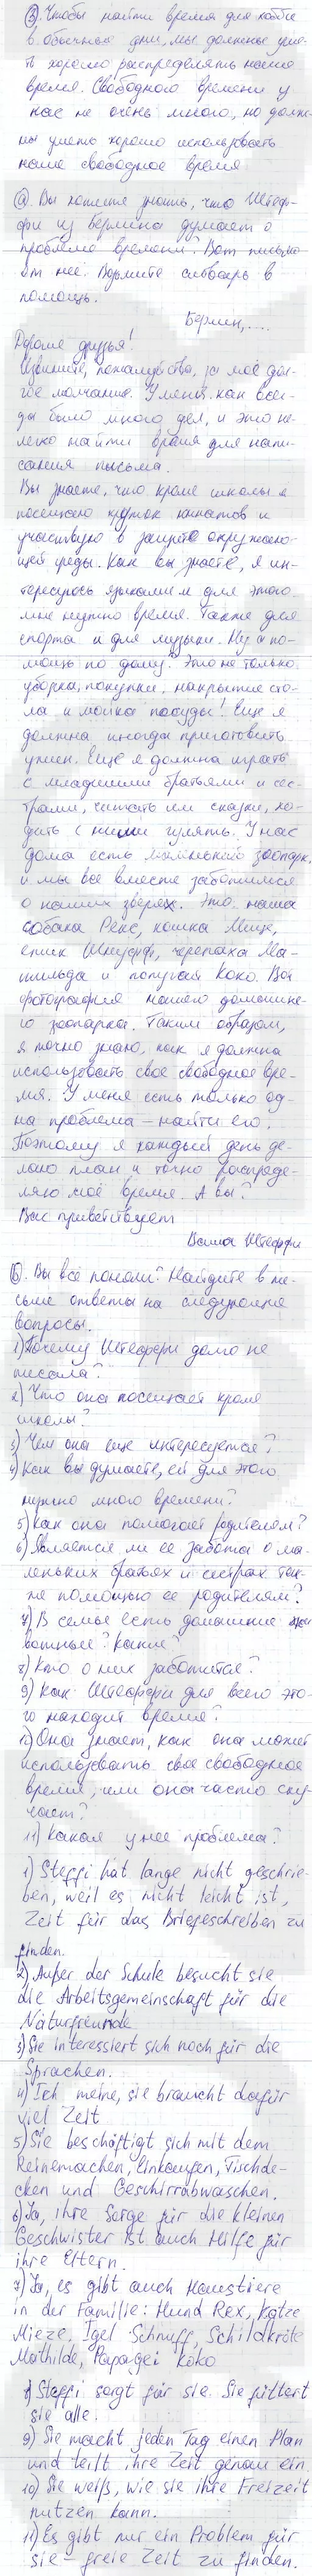 ③. Чтобы найти время для хобби
в обычные дни, мы должны уме-
ть хорошо распределять наше
время. Свободного времени у
нас не очень много, но долж-
ны уметь хорошо использовать
наше свободное время.
ⓐ. Вы хотите знать, что Штеф-
фи из Берлина думает о
проблеме времени. Вот письмо
от нее. Возьмите словарь в
помощь.
Берлин,....
Дорогие друзья!
Извините, пожалуйста, за моё дол-
гое молчание. У меня, как всег-
да было много дел, и это не-
легко найти время для напи-
сания письма.
Вы знаете, что кроме школы я
посещаю кружок юннатов и
участвую в защите окружаю-
щей среды. Как вы знаете, я ин-
тересуюсь языками и для этого
мне нужно время. Также для
спорта и для музыки. Ну а по-
мощь по дому? Это не только
уборка, покупки, накрытие сто-
ла и мойка посуды! Еще я
должна иногда приготовить
ужин. Еще я должна играть
с младшими братьями и сес-
трами, читать им сказки, хо-
дить с ними гулять. У нас
дома есть маленький зоопарк,
и мы все вместе заботимся
о наших зверях. Это наша
собака Рекс, кошка Мице,
ёжик Шнуфф, черепаха Ма-
тильда и попугай Коко. Вот
фотография нашего домашне-
го зоопарка. Таким образом,
я точно знаю, как я должна
использовать свое свободное вре-
мя. У меня есть только од-
на проблема – найти его.
Поэтому я каждый день де-
лаю план и точно распреде-
ляю моё время. А вы?
Вас приветствует
Ваша Штеффи
ⓑ. Вы всё поняли? Найдите в пи-
сьме ответы на следующие
вопросы.
1) Почему Штеффи долго не
писала?
2) Что она посещает кроме
школы?
3) Чем она еще интересуется?
4) Как вы думаете, ей для этого
нужно много времени?
5) Как она помогает родителям?
6) Является ли ее забота о ма-
леньких братьях и сестрах так-
же помощью ее родителям?
7) В семье есть домашние жи
вотные? Какие?
8) Кто о них заботится?
9) Как Штеффи для всего это-
го находит время?
10) Она знает, как она может
использовать свое свободное
время, или она часто ску-
чает?
11) Какая у нее проблема?
1) Steffi hat lange nicht geschrie-
ben, weil es nicht leicht ist,
Zeit für das Briefeschreiben zu
finden.
2) Außer der Schule besucht sie
die Arbeitsgemeinschaft für die
Naturfreunde
3) Sie interessiert sich noch für die
Sprachen.
4) Ich meine, sie braucht dafür
viel Zeit
5) Sie beschäftigt sich mit dem
Reinemachen, Einkaufen, Tischde-
cken und Geschirrabwaschen.
6) Ja, ihre Sorge für die kleinen
Geschwister ist auch Hilfe für
ihre Eltern.
7) Ja, es gibt auch Haustiere
in der Familie: Hund Rex, Katze
Mieze, Igel Schnuff, Schildkröte
Mathilde, Papagei Koko
8) Steffi sorgt für sie. Sie füttert
sie alle.
9) Sie macht jeden Tag einen Plan
und teilt ihre Zeit genau ein
10) Sie weiß, wie sie ihre Freizeit
nutzen kann.
11) Es gibt nur ein Problem für
sie – freie Zeit zu finden.